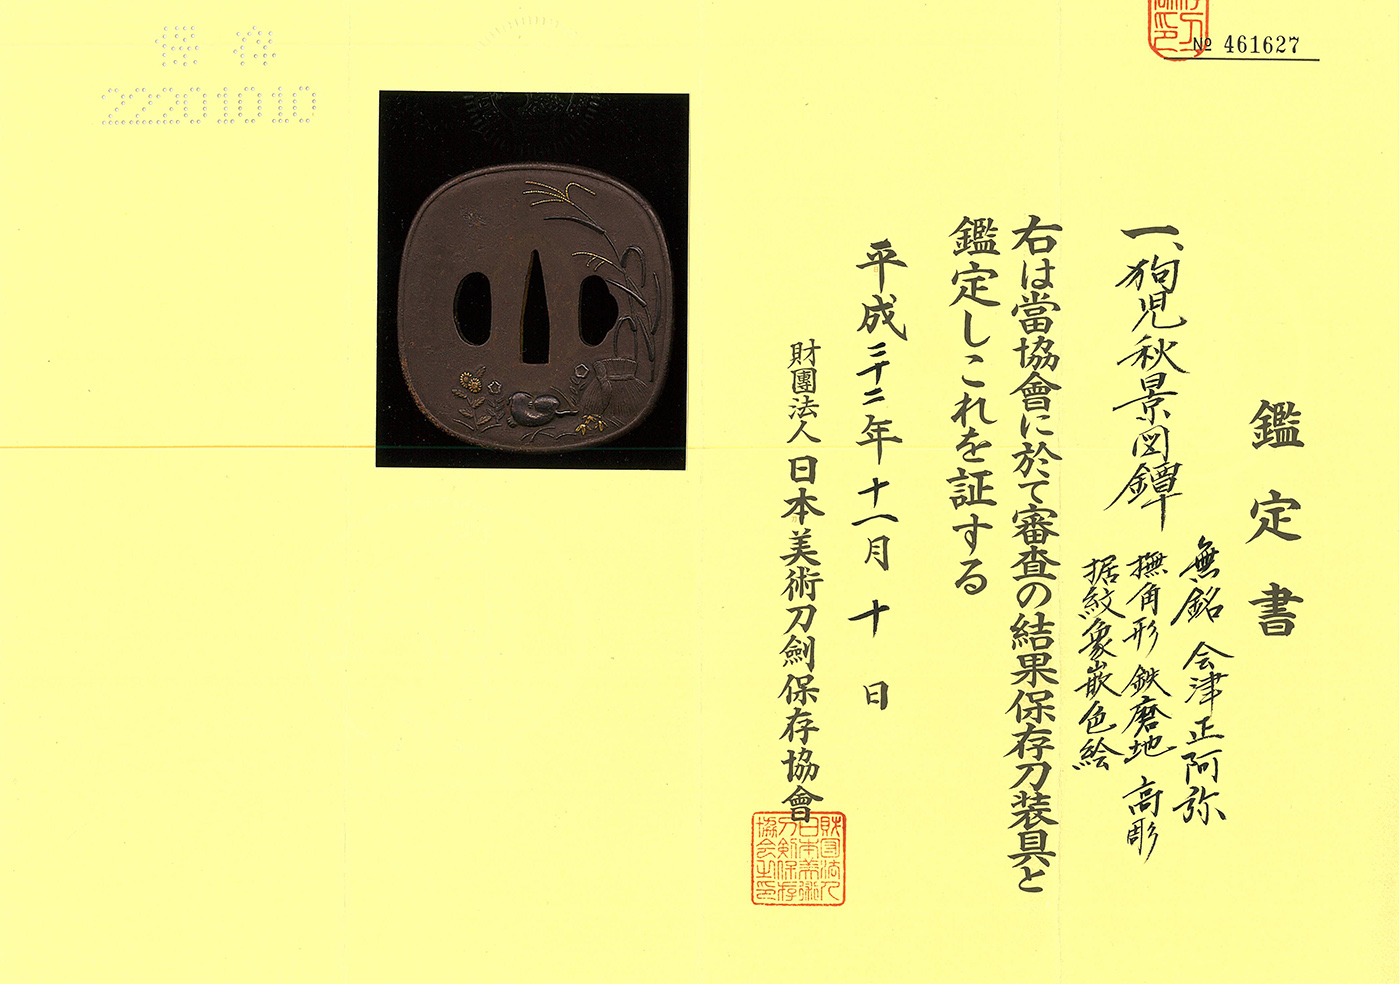 № 461627
鑑定書
一、狗児秋景図鐔
無銘 会津正阿弥
撫角形 鉄磨地 高彫
据紋象嵌色絵
右は當協會に於て審査の結果保存刀装具と
鑑定しこれを証する
平成二十二年十一月十日
財團法人日本美術刀劍保存協會
財団法人
日本美術
刀剣保存
協会之印
保存
22201010